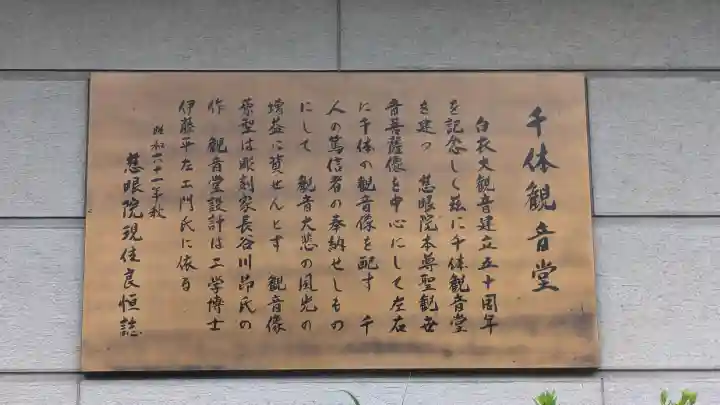 千体観音堂
白衣大観音建立五十周年
を記念しく茲に千体観音堂
を建つ 慈眼院本尊聖観世
音菩薩像を中心にして左右
に千体の観音像を配す 千
人の篤信者の奉納せしもの
にして 観音大悲の風光の
増益に資せんとす 観音像
原型は彫刻家長谷川昂氏の
作 観音堂設計は工学博士
伊藤平左エ門氏に依る
昭和六十一年秋
慈眼院現住良恒誌